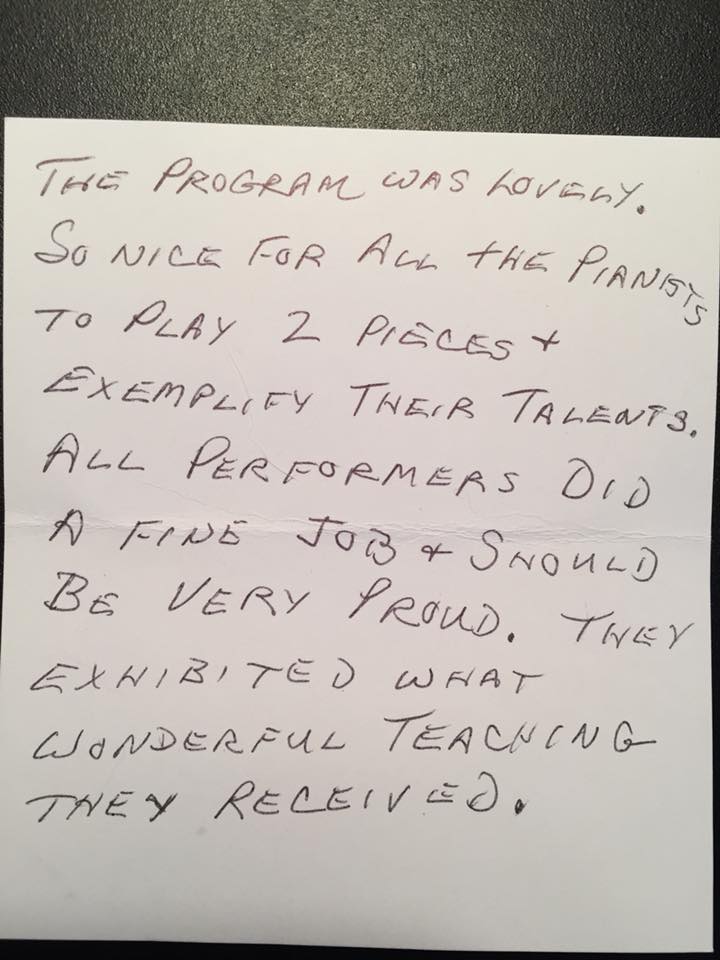 THE PROGRAM WAS LOVELY.
SO NICE FOR ALL THE PIANISTS
TO PLAY 2 PIECES +
EXEMPLIFY THEIR TALENTS.
ALL PERFORMERS DID
A FINE JOB + SHOULD
BE VERY PROUD. THEY
EXHIBITED WHAT
WONDERFUL TEACHING
THEY RECEIVED.